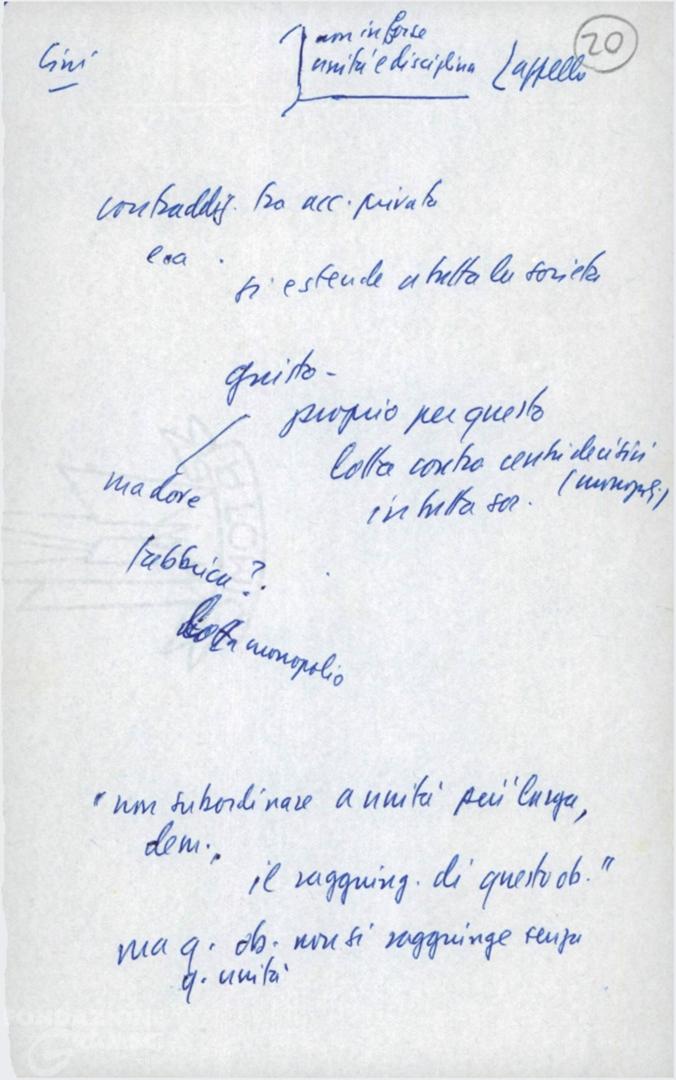 20
Cini
non in forse
unità e disciplina
appello
contraddiz. tra acc. privata
e
si estende a tutta la società
giusto -
proprio per questo
lotta contro centri decisivi
(monopoli)
in tutta soc.
ma dove
fabbrica?
lotta monopolio
"non subordinare a unità più larga,
dem.,
il raggiung. di questo ob."
ma q. ob. non si raggiunge senza
q. unità
FONDAZIONE
GRAMSCI